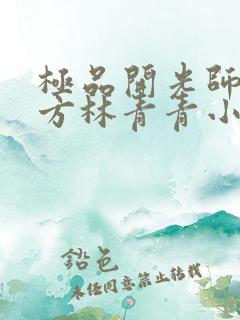 極品開光師
方林青青小
鉛色
未経同意禁止转载